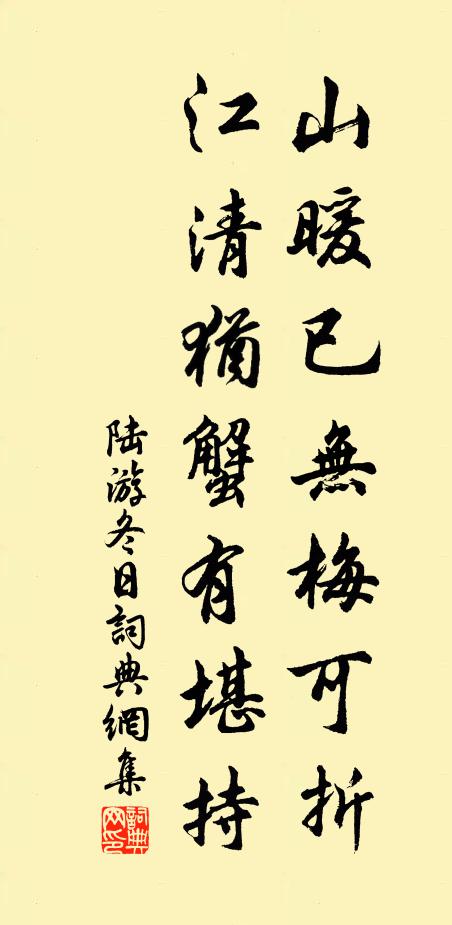 山暖已無梅可折
江清猶蟹有堪持
陆游冬日詞典網集
詞典网印